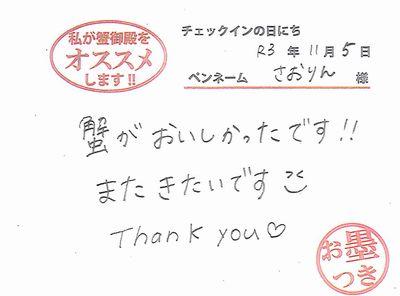 私が蟹御殿を
オススメ
します!!
チェックインの日にち
R3 年 11月 5日
ペンネーム さおりん 様
蟹がおいしかったです!!
またきたいです
Thank you♡
お墨
つき